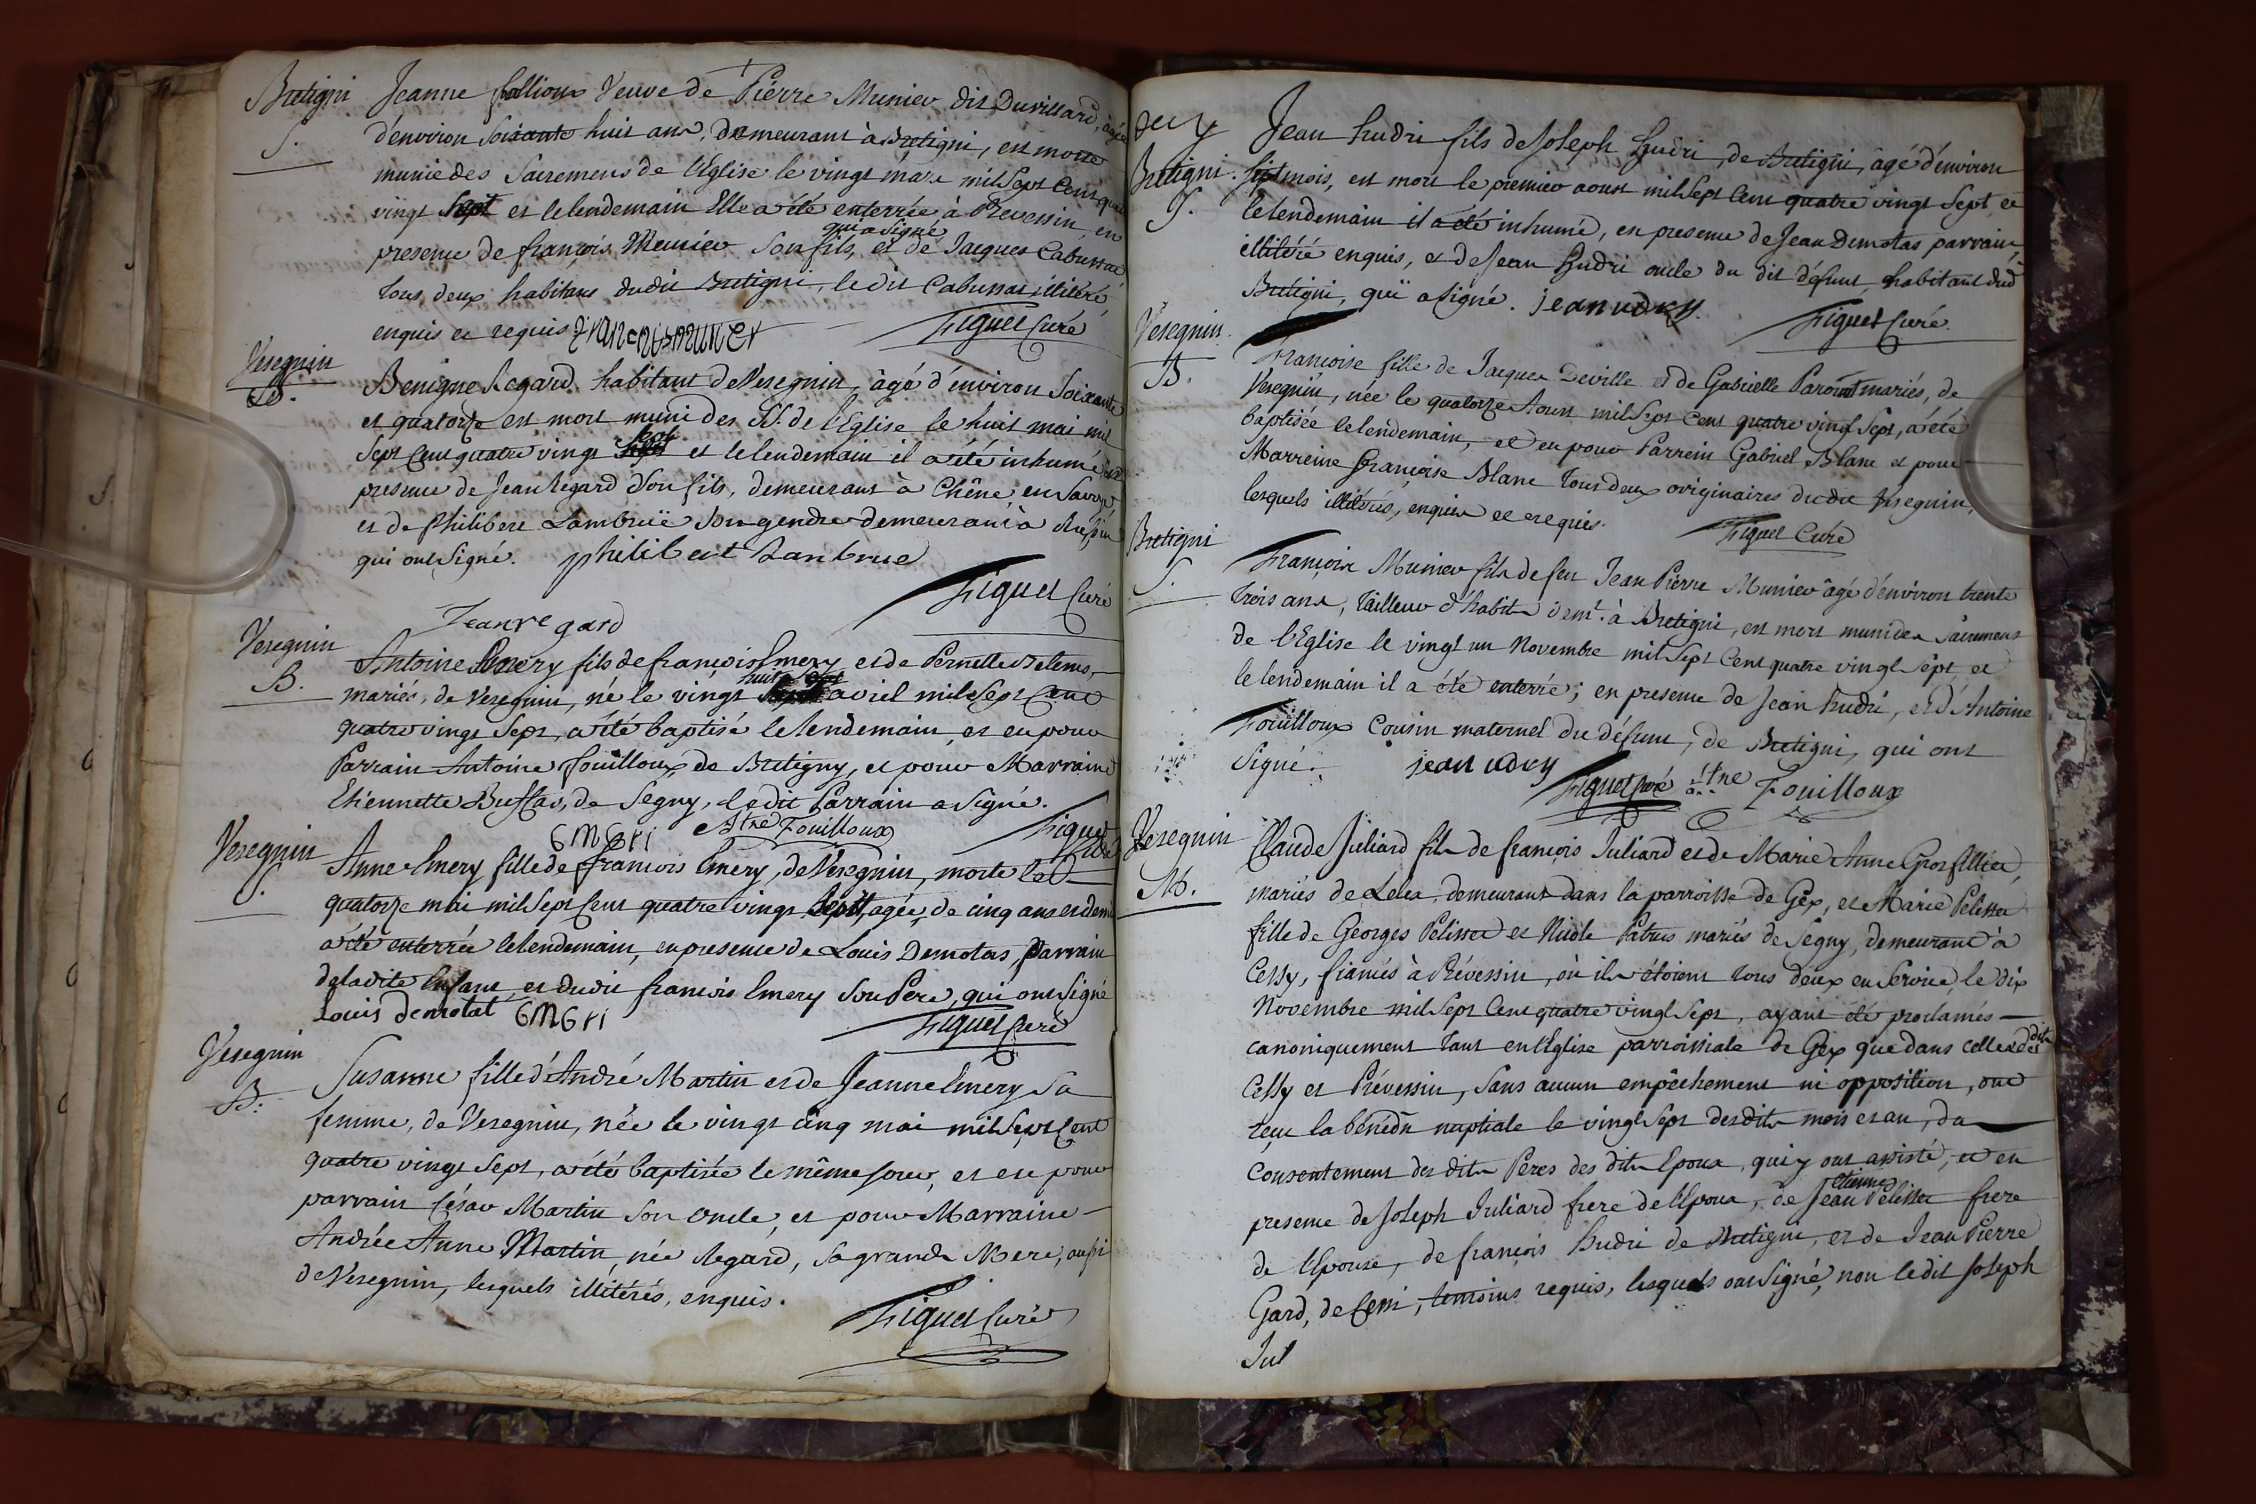 Bretigni
S.
Jeanne follioux Veuve de Pierre Munier dit Duvillard, agée
d'environ soixante huit ans, demeurant à Bretigni, est morte
munie des Sacremens de l'Eglise le vingt mars mil Sept Cent quatre
vingt Sept et le lendemain Elle a été enterrée à Prevessin, en
presence de françois Meunier Son fils, qui a signé et de Jacques Cabussat
tous deux habitans dudit Bretigni, le dit Cabussat illitéré
enquis et requis francois munier
Figuet Curé
Veregnin
S.
Benigne Regard habitant de Veregnin, âgé d'environ Soixante
et quatorze est mort muni des SS. de l'Eglise le huit mai mil
Sept Cent quatre vingt Sept et le lendemain il a été inhumé en
presence de Jean Regard Son fils, demeurant à Chêne en Savoye
et de Philibert Lambruë Son gendre demeurant à
qui ont Signé. philibert Lanbrue
Figuet Curé
Jean regard
Veregnin
B.
Antoine Emery fils de françois Emery et de Pernette
mariés, de Veregnin, né le vingt huit avril mil Sept Cent
quatre vingt Sept, a été baptisé le lendemain et eu pour
Parrain Antoine fouilloux de Bretigny, et pour Marraine
Etiennette Buffas, de Segny, le dit Parrain a Signé.
EMERI Atne Fouilloux
Figuet Curé
Veregnin
S.
Anne Emery fille de francois Emery, de Veregnin, morte le
quatorze mai mil Sept Cent quatre vingt Sept, agée de cinq ans et demi
a été enterrée le lendemain, en presence de Louis Demotas, Parrain
de ladite Enfant et dudit francois Emery Son Pere, qui ont Signé
Louis demotat EMERI
Figuet Curé
Veregnin
B.
Susanne fille d'André Martin et de Jeanne Emery Sa
femme, de Veregnin, née le vingt cinq mai mil Sept Cent
quatre vingt Sept, a été baptisée le même jour, et eu pour
parrain César Martin Son Oncle, et pour Marraine
Andrée Anne Martin, née Regard, Sa grande Mere, aussi
de Veregnin, lesquels illitérés, enquis.
Figuet Curé
Bretigni.
S.
Jean hudri fils de Joseph hudri, de Bretigni, âgé d'environ
Sept mois, est mort le premier aoust mil Sept Cent quatre vingt Sept et
le lendemain il a été inhumé, en presence de Jean Demotas parrain,
illitéré enquis, et de Jean hudri oncle du dit défunt habitant dud
Bretigni, qui a signé. jean udry
Figuet Curé.
Veregnin.
B.
Françoise fille de Jacques Deville et de Gabrielle mariés, de
Veregnin, née le quatorze Aoust mil Sept Cent quatre vingt Sept, a été
baptisée le lendemain, et eu pour Parrein Gabriel Blanc et pour
Marreine françoise Blanc tous deux originaires dudit Veregnin,
lesquels illitérés, enquis et requis.
Figuet Curé
Bretigni
S.
François Munier fils de feu Jean Pierre Munier âgé d'environ trente
trois ans, tailleur d'habits demt. à Bretigni, est mort muni des Sacremens
de l'Eglise le vingt un Novembre mil Sept Cent quatre vingt Sept, et
le lendemain il a été enterré; en presence de Jean hudri, et d'Antoine
Fouilloux Cousin maternel du défunt, de Bretigni, qui ont
Signé. jean udry
Figuet Curé Atne Fouilloux
Veregnin
M.
Claude Juliard fils de françois Juliard et de Marie Anne Grosfillier,
mariés de Lelex, demeurant dans la parroisse de Gex, et Marie Pelisser
fille de Georges Pelisser et Nicole Patrus mariés de Segny, demeurant à
Cessy, fiancés à Prévessin, où ils étoient tous deux en service, le dix
Novembre mil Sept Cent quatre vingt Sept, ayant été proclamés
canoniquement tant en l'Eglise parroissiale de Gex que dans celles desdits
Cessy et Prévessin, Sans aucun empêchement ni opposition, ont
reçu la bénédn nuptiale le vingt Sept desdits mois et an, du
Consentement des dits Peres des dits Epoux, qui y ont assisté, et en
presence de Joseph Juliard frere de l'Epoux, de Jean Etienne Pelisser frere
de l'Epouse, de françois hudri de Bretigni, et de Jean Pierre
Gard, de Cessi, temoins requis, lesquels ont Signé, non le dit Joseph
Jul